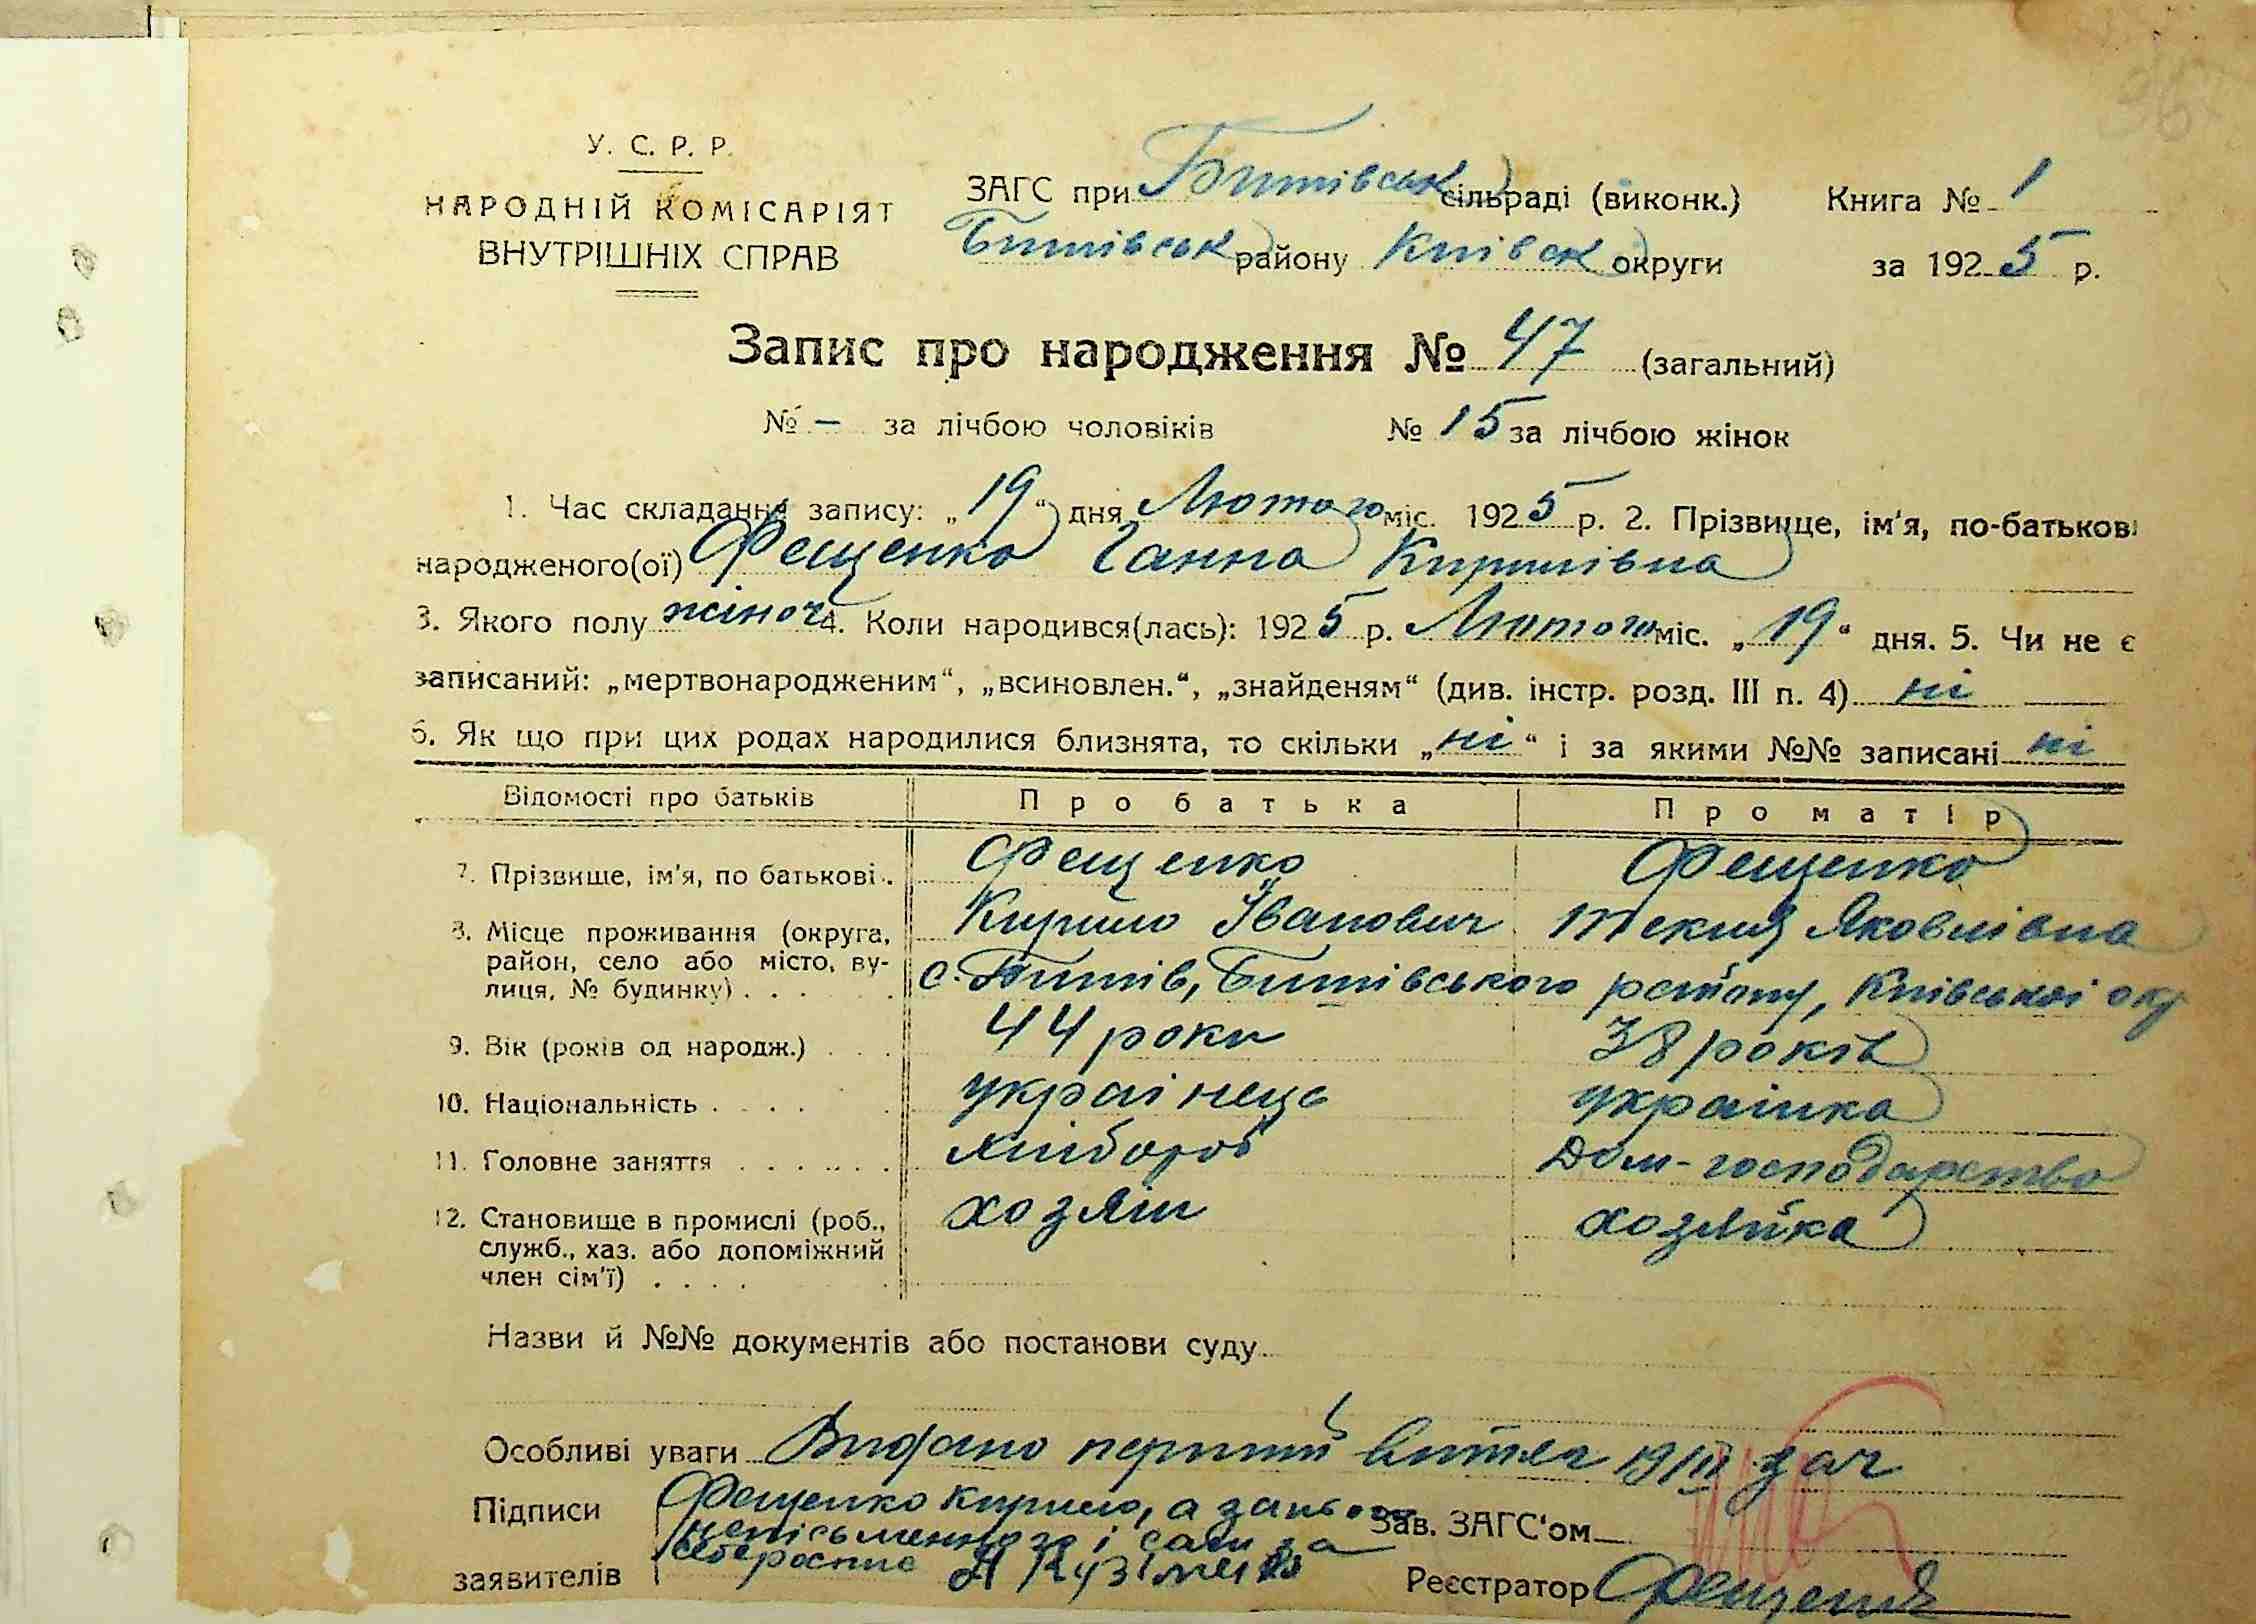 36
У. С. Р. Р.
НАРОДНІЙ КОМІСАРІЯТ
ВНУТРІШНІХ СПРАВ
ЗАГС при Бишівськ сільраді (виконк.) Книга № 1
Бишівськ району Київськ округи за 1925 р.
Запис про народження № 47 (загальний)
№ — за лічбою чоловіків № 15 за лічбою жінок
1. Час складання запису: „19“ дня Лютого міс. 1925 р. 2. Прізвище, ім'я, по-батькові
народженого(ої) Фещенко Ганна Кирилівна
3. Якого полу жіноч 4. Коли народився(лась): 1925 р. Лютого міс. „19“ дня. 5. Чи не є
записаний: „мертвонародженим“, „всиновлен.“, „знайденям“ (див. інстр. розд. III п. 4) ні
6. Як що при цих родах народилися близнята, то скільки „ні“ і за якими №№ записані ні
Відомості про батьків Про батька Про матір
7. Прізвище, ім'я, по батькові. Фещенко Фещенко
Кирило Іванович Текля Яковлівна
8. Місце проживання (округа, район, село або місто, вулиця, № будинку) с. Бишів, Бишівського району, Київської окр
9. Вік (років од народж.) 44 роки 38 років
10. Національність українець українка
11. Головне заняття хлібороб Дом-господарство
12. Становище в промислі (роб., служб., хаз. або допоміжний член сім'ї) хозяїн хозяйка
Назви й №№ документів або постанови суду
Особливі уваги Видано перший витяг 19/II за ч
Підписи заявителів Фещенко Кирило, а за нього
неписьменного і сам за
себе роспис А Кузіменко
Зав. ЗАГС'ом
Реєстратор Фещенко